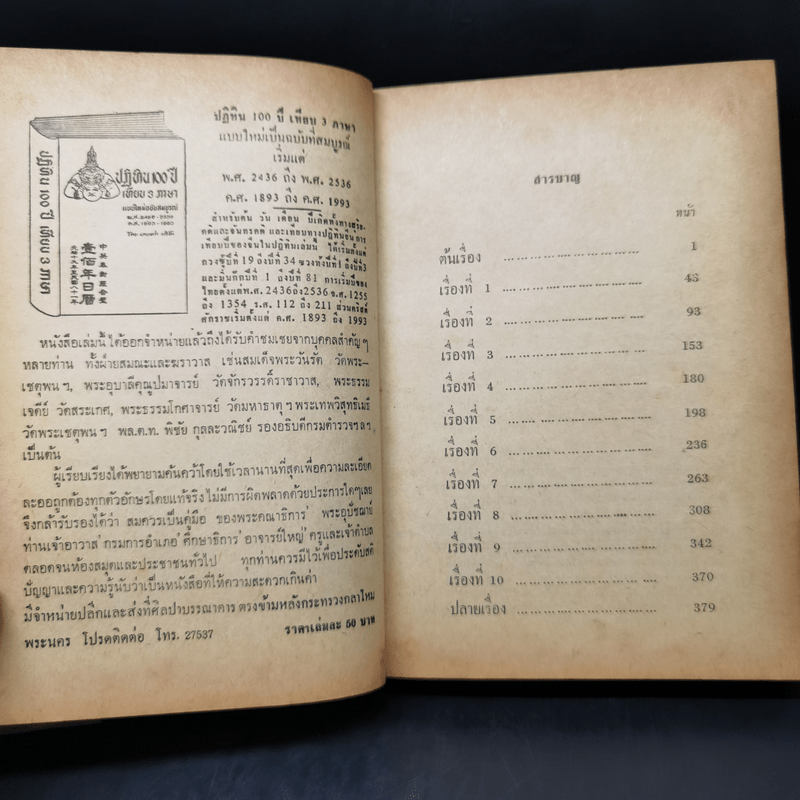 ปฏิทิน 100 ปี เทียบ 3 ภาษา
แบบใหม่เป็นฉบับที่สมบูรณ์
เริ่มแต่
พ.ศ. 2436 ถึง พ.ศ. 2536
ค.ศ. 1893 ถึง ค.ศ. 1993
ปฏิทิน 100 ปี เทียบ 3 ภาษา
ปฏิทิน 100 ปี
เทียบ 3 ภาษา
壹佰年日曆
สำหรับค้น วัน เดือน ปีเกิดทั้งทางสุริย-
คติและจันทรคติ และเทียบทางปฏิทินจีน การ
เทียบปีของจีนในปฏิทินเล่มนี้ ให้เริ่มตั้งแต่
กวงซู้ปีที่ 19 ถึงปีที่ 34 ซวงท้งปีที่ 1 ถึงปีที่3
และมิ่นกักปีที่ 1 ถึงปีที่ 81 การเริ่มปีของ
ไทยตั้งแต่พ.ศ. 2436ถึง2536 จ.ศ. 1255
ถึง 1354 ร.ศ. 112 ถึง 211 ส่วนคริสต์
ศักราชเริ่มตั้งแต่ ค.ศ. 1893 ถึง 1993
หนังสือเล่มนี้ ได้ออกจำหน่ายแล้วถึงได้รับคำชมเชยจากบุคคลสำคัญๆ
หลายท่าน ทั้งฝ่ายสมณะและฆราวาส เช่นสมเด็จพระวันรัต วัดพระ-
เชตุพน ฯ, พระอุบาลีคุณูปมาจารย์ วัดจักรวรรดิ์ราชาวาส, พระธรรม
เจดีย์ วัดสระเกศ, พระธรรมโกศาจารย์ วัดมหาธาตุ ฯ พระเทพวิสุทธิเมธี
วัดพระเชตุพน ฯ พล.ต.ท. พิชัย กุลละวณิชย์ รองอธิบดีกรมตำรวจฯลฯ
เป็นต้น
ผู้เรียบเรียงได้พยายามค้นคว้าโดยใช้เวลานานที่สุดเพื่อความละเอียด
ละออถูกต้องทุกตัวอักษรโดยแท้จริง ไม่มีการผิดพลาดด้วยประการใดๆเลย
จึงกล้ารับรองได้ว่า สมควรเป็นคู่มือ ของพระคณาธิการ พระอุปัชฌาย์
ท่านเจ้าอาวาส กรมการอำเภอ ศึกษาธิการ อาจารย์ใหญ่ ครูและเจ้าตำบล
ตลอดจนห้องสมุดและประชาชนทั่วไป ทุกท่านควรมีไว้เพื่อประดับสติ
ปัญญาและความรู้นับว่าเป็นหนังสือที่ให้ความสะดวกเกินค่า
มีจำหน่ายปลีกและส่งที่ศิลปาบรรณาคาร ตรงข้ามหลังกระทรวงกลาโหม
พระนคร โปรดติดต่อ โทร. 27537 ราคาเล่มละ 50 บาท
สารบาญ
หน้า
ต้นเรื่อง ................................. 1
เรื่องที่ 1 ................................. 43
เรื่องที่ 2 ................................. 93
เรื่องที่ 3 ................................. 153
เรื่องที่ 4 ................................. 180
เรื่องที่ 5 ................................. 198
เรื่องที่ 6 ................................. 236
เรื่องที่ 7 ................................. 263
เรื่องที่ 8 ................................. 308
เรื่องที่ 9 ................................. 342
เรื่องที่ 10 ................................. 370
ปลายเรื่อง ................................. 379